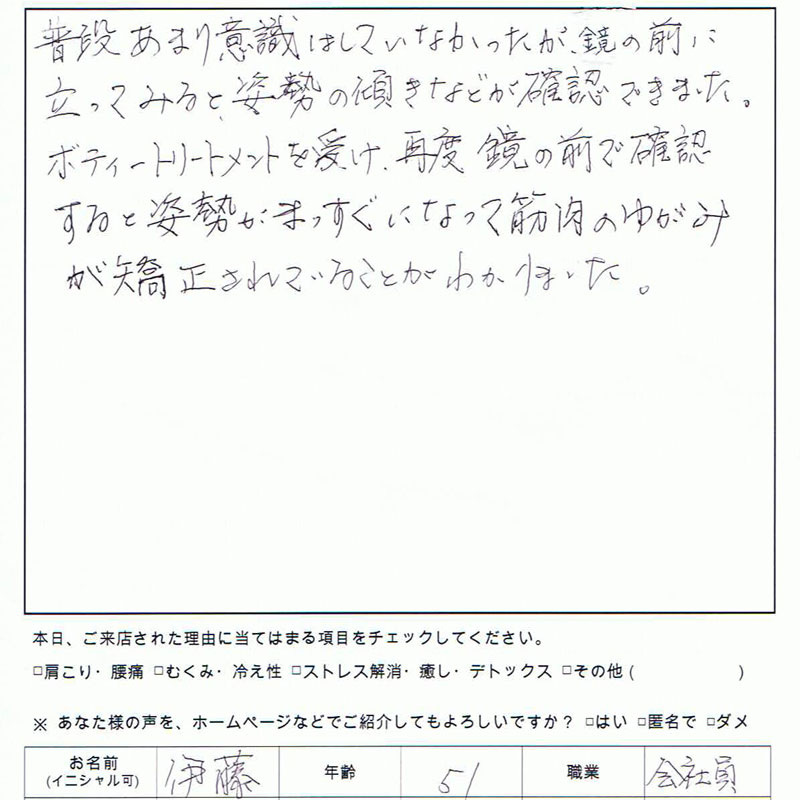 普段あまり意識はしていなかったが、鏡の前に
立ってみると、姿勢の傾きなどが確認できました。
ボディートリートメントを受け、再度鏡の前で確認
すると姿勢がまっすぐになって筋肉のゆがみ
が矯正されていることがわかりました。
本日、ご来店された理由に当てはまる項目をチェックしてください。
□肩こり・腰痛 □むくみ・冷え性 □ストレス解消・癒し・デトックス □その他 ( )
※ あなた様の声を、ホームページなどでご紹介してもよろしいですか？ □はい □匿名で □ダメ
お名前 (イニシャル可) 伊藤 年齢 51 職業 会社員